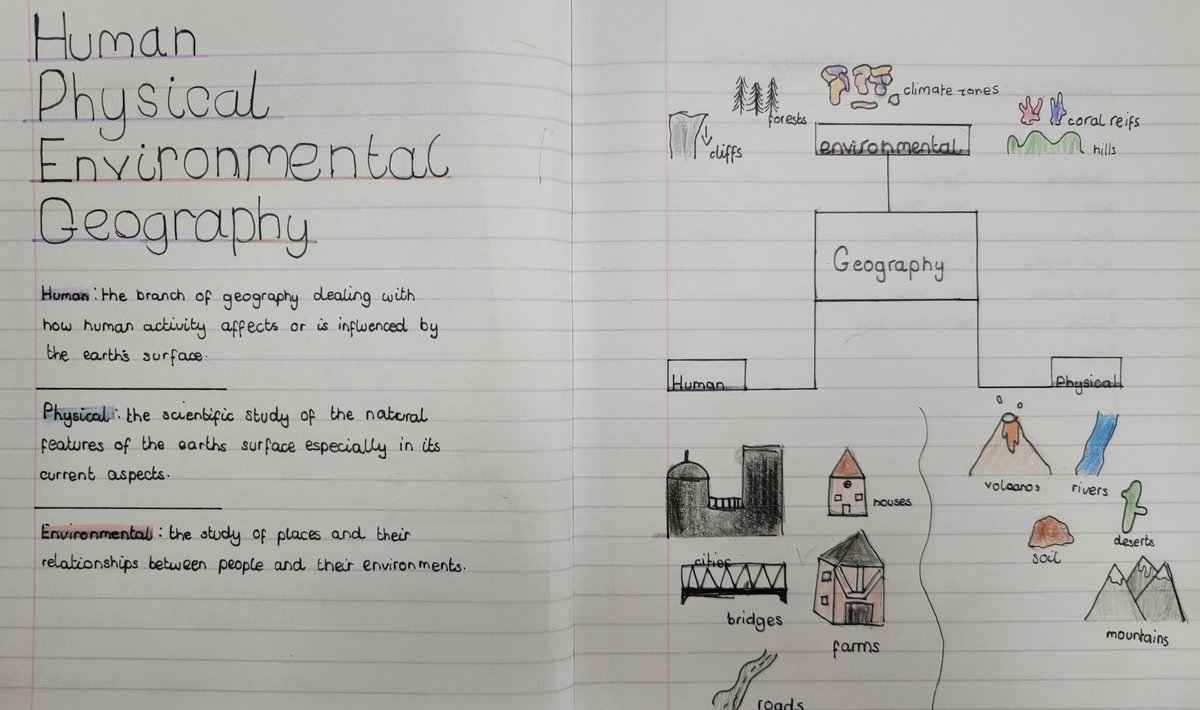 Human
Physical
Environmental
Geography
Human: the branch of geography dealing with
how human activity affects or is influenced by
the earth's surface.
Physical: the scientific study of the natural
features of the earths surface especially in its
current aspects.
Environmental: the study of places and their
relationships between people and their environments.
climate zones
forests
coral reifs
cliffs
environmental
hills
Geography
Human
Physical
volcanos
rivers
houses
deserts
cities
soil
bridges
farms
mountains
roads